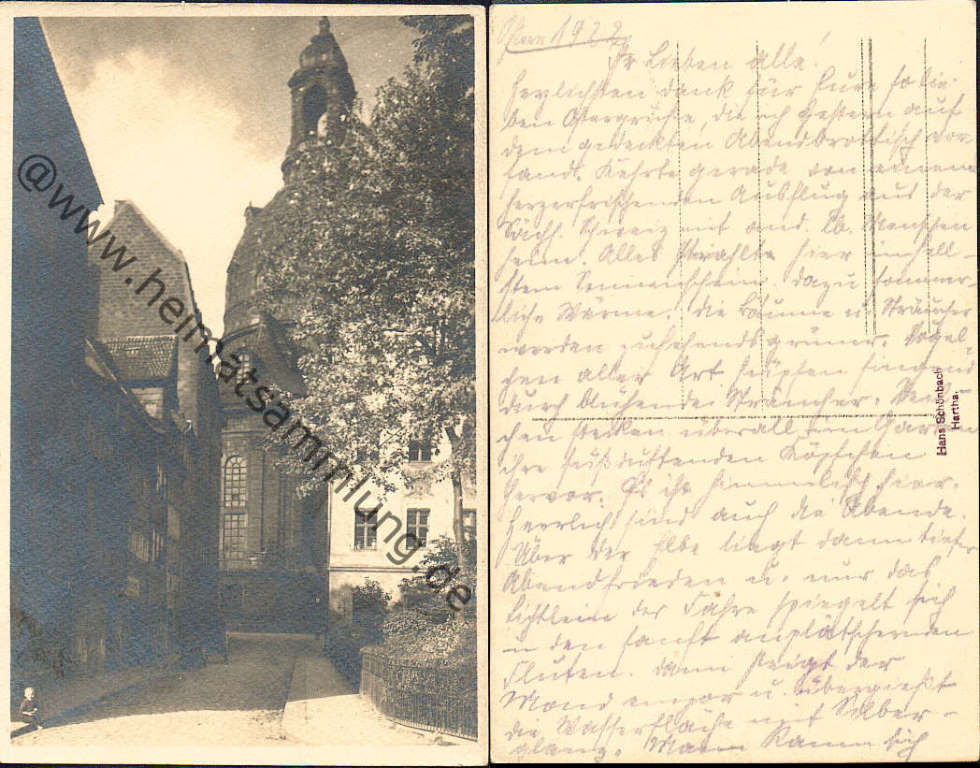 @www.heimatsammlung.de
Ostern 1922
Ihr Lieben alle!
Herzlichsten Dank für Eure so lie-
ben Ostergrüsse, die ich gestern auf
dem gedeckten Abendbrottisch vor-
fand. Kehrte gerade von einem
herzerfrischenden Ausflug aus der
Sächs. Schweiz mit and. lb. Menschen
heim. Alles strahlte hier in hell-
stem Sonnenschein. dazu sommer-
liche Wärme. Die Bäume u. Sträucher
werden zusehends grüner. Vögel-
chen aller Art hüpfen singend
durch blühende Sträucher. Veil-
chen stecken überall im Garten
ihre süß duftenden Köpfchen
hervor. Es ist himmlisch hier.
Herrlich sind auch die Abende.
Über der Elbe liegt dann tiefer
Abendfrieden u. nur das
Lichtlein der Fähre spiegelt sich
in den sanft anplätschernden
Fluten. Dann steigt der
Mond empor u. übergießt
die Wasserfläche mit Silber-
glanz. Mann kann sich
Hans Schönbach
Hartha.